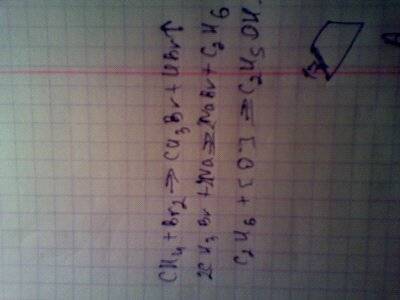 CH₄ + Br₂ → CH₃Br + HBr↑
2CH₃Br + 2Na ⇒ 2NaBr + C₂H₆
C₂H₆ + [O] ⇒ C₂H₅OH